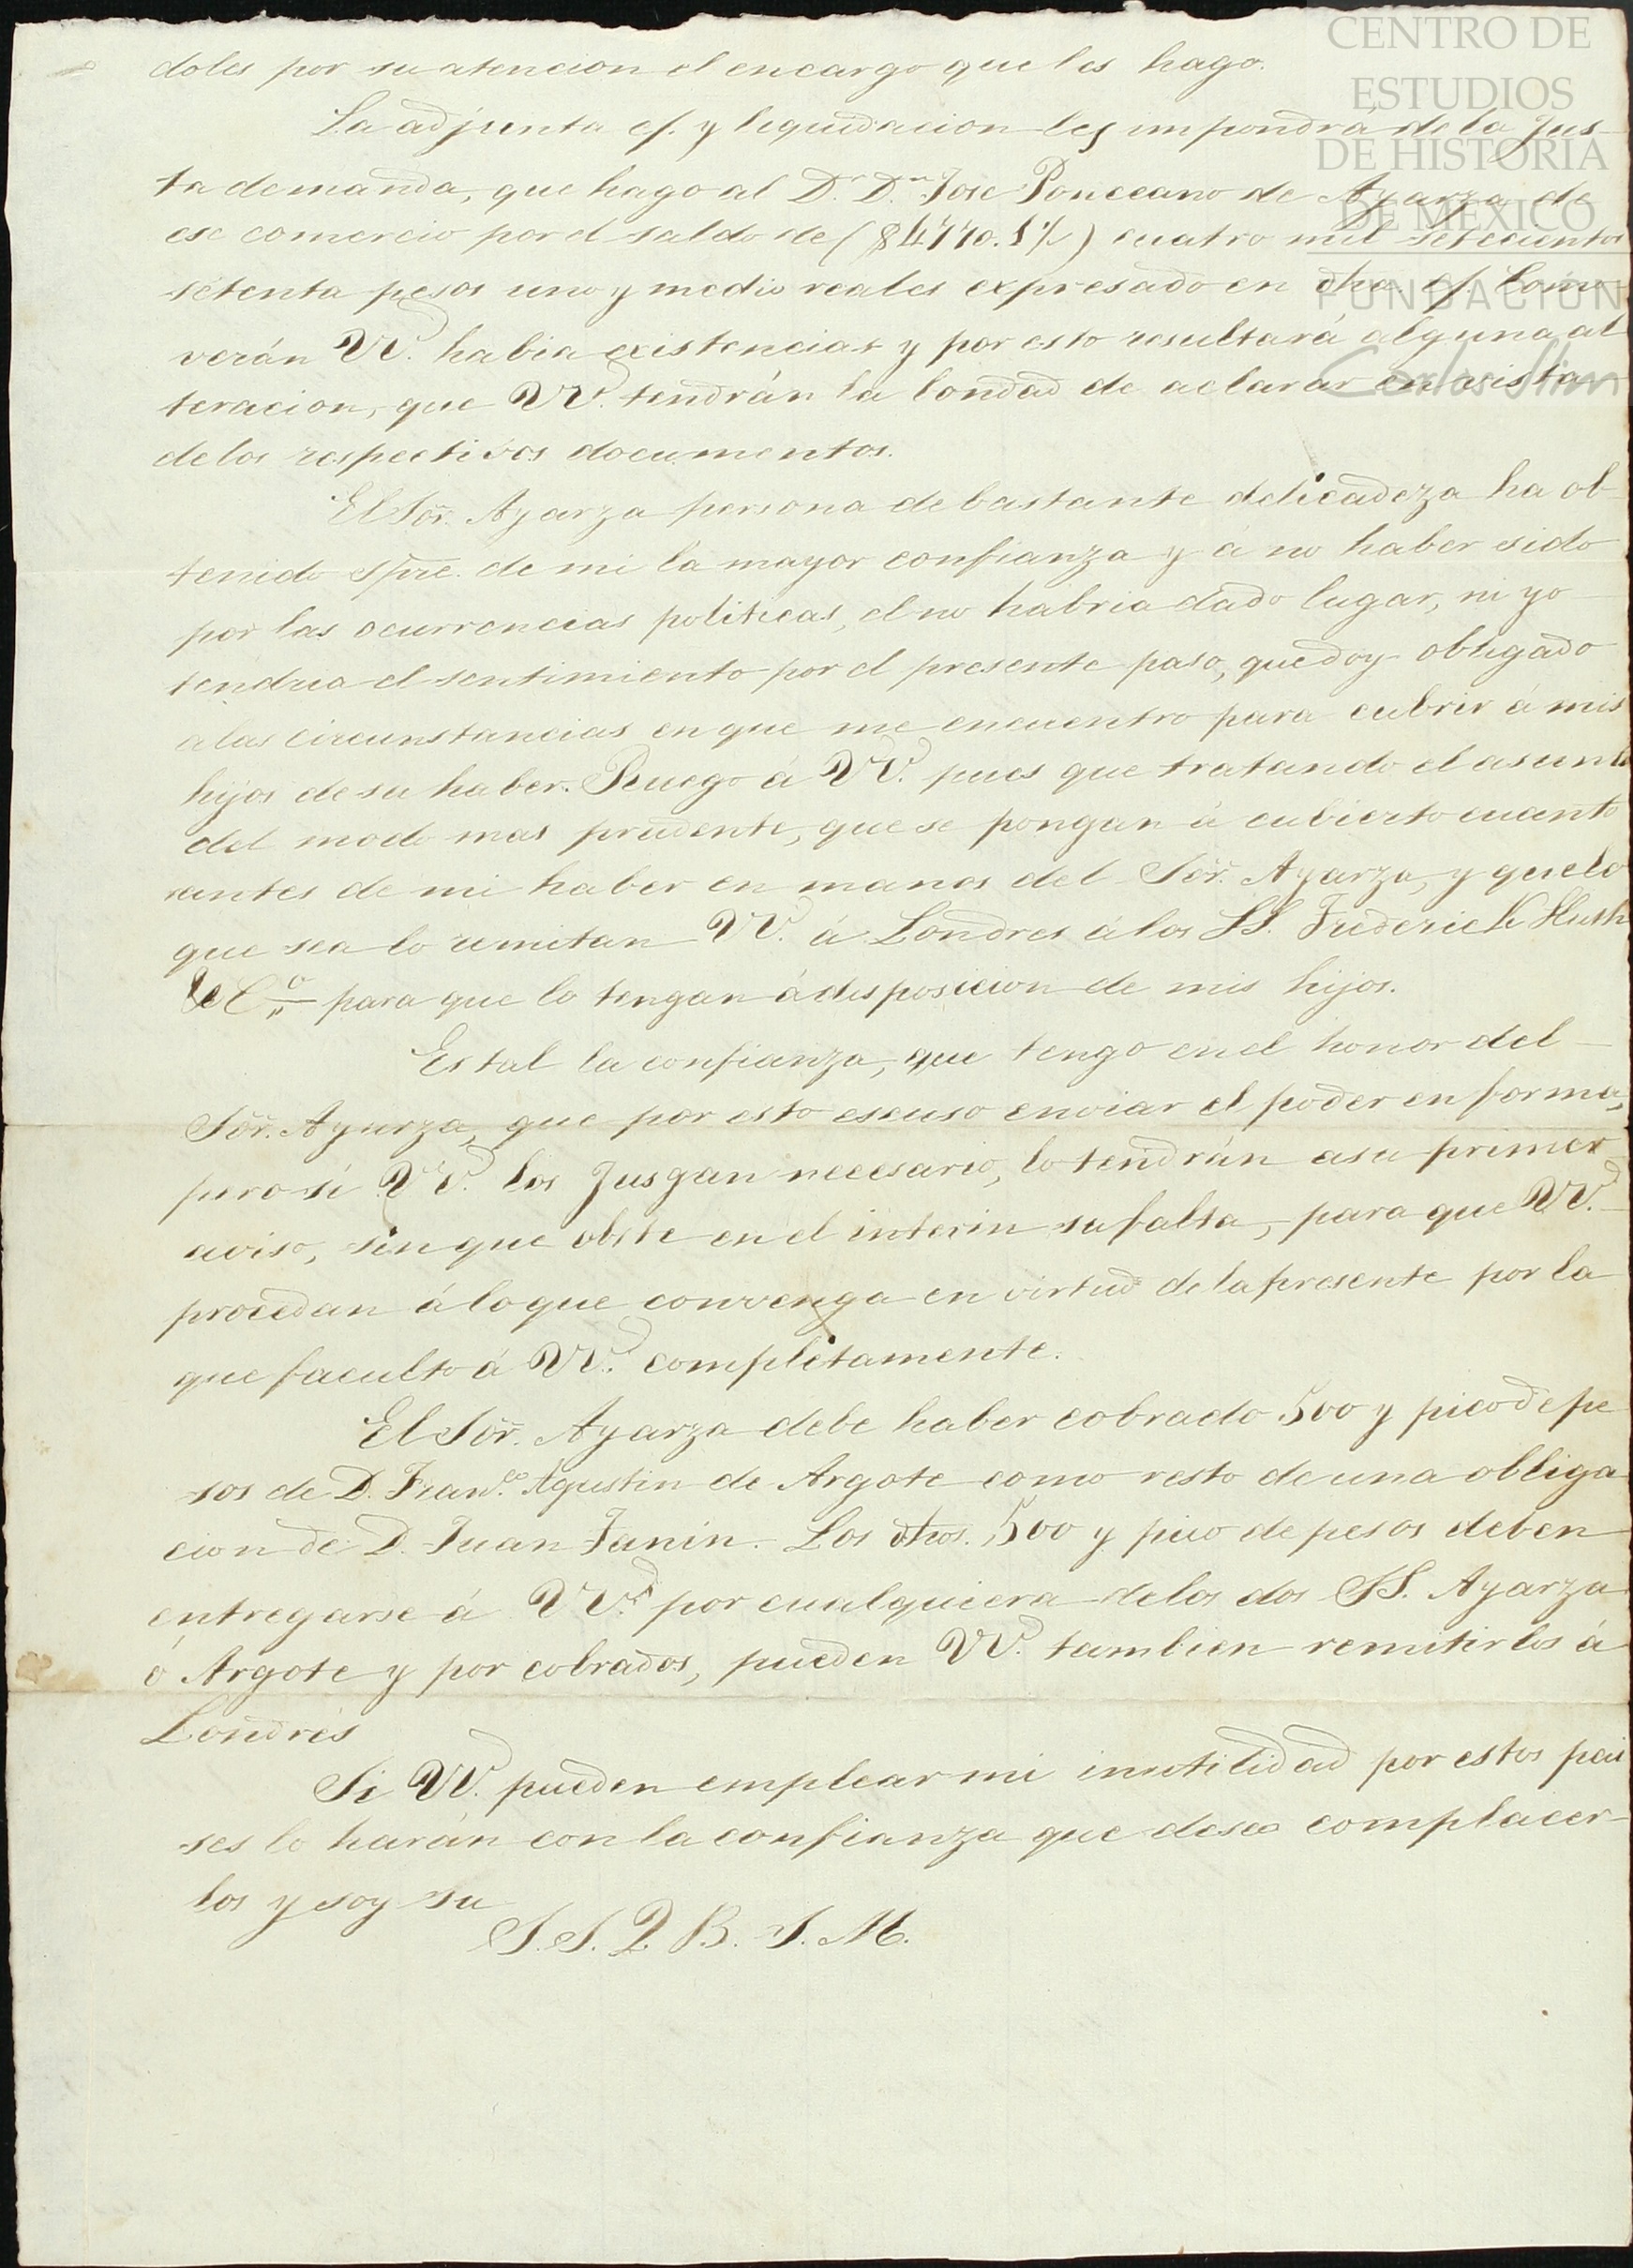 doles por su atencion el encargo que les hago.
La adjunta c/. y liquidacion les impondrá de la Jus-
ta demanda, que hago al D.r D.n Jose Ponceano de Ayarza de
ese comercio por el saldo de ($ 4770. 1 ½) cuatro mil setecientos
setenta pesos uno y medio reales expresado en dha. c/. Como
verán VV. habia existencias y por esto resultará alguna al
teracion, que VV. tendrán la bondad de aclarar en vista
de los respectivos documentos.
El Sör. Ayarza persona de bastante delicadeza ha ob
tenido spre. de mi la mayor confianza y á no haber sido
por las ocurrencias politicas, el no habria dado lugar, ni yo
tendria el sentimiento por el presente paso, que doy obligado
a las circunstancias en que me encuentro para cubrir á mis
hijos de su haber. Ruego á VV. pues que tratando el asunto
del modo mas prudente, que se pongan á cubierto cuanto
antes de mi haber en manos del Sör. Ayarza, y que lo
que sea lo remitan VV. á Londres á los SS. Frederick Huth
& C.o para que lo tengan á disposicion de mis hijos.
Es tal la confianza, que tengo en el honor del
Sör. Ayarza, que por esto escuso enviar el poder en forma,
pero si VV. los Jusgan necesario, lo tendrán a su primer
aviso, sin que obste en el interin su falta, para que VV.
procedan á lo que convenga en virtud de la presente por la
que faculto á VV. completamente.
El Sör. Ayarza debe haber cobrado 500 y pico de pe
sos de D. Fran.co Agustin de Argote como resto de una obliga
cion de D. Juan Fanin. Los dhos. 500 y pico de pesos deben
entregarse á VV.s por cualquiera de los dos SS. Ayarza
ó Argote y por cobrados, pueden VV. tambien remitirlos á
Londres
Si VV. pueden emplear mi inutilidad por estos pai
ses lo harán con la confianza que deseo complacer-
los y soy su
S. S. Q. B. S. M.
CENTRO DE
ESTUDIOS
DE HISTORIA
DE MÉXICO
FUNDACIÓN
Carlos Slim